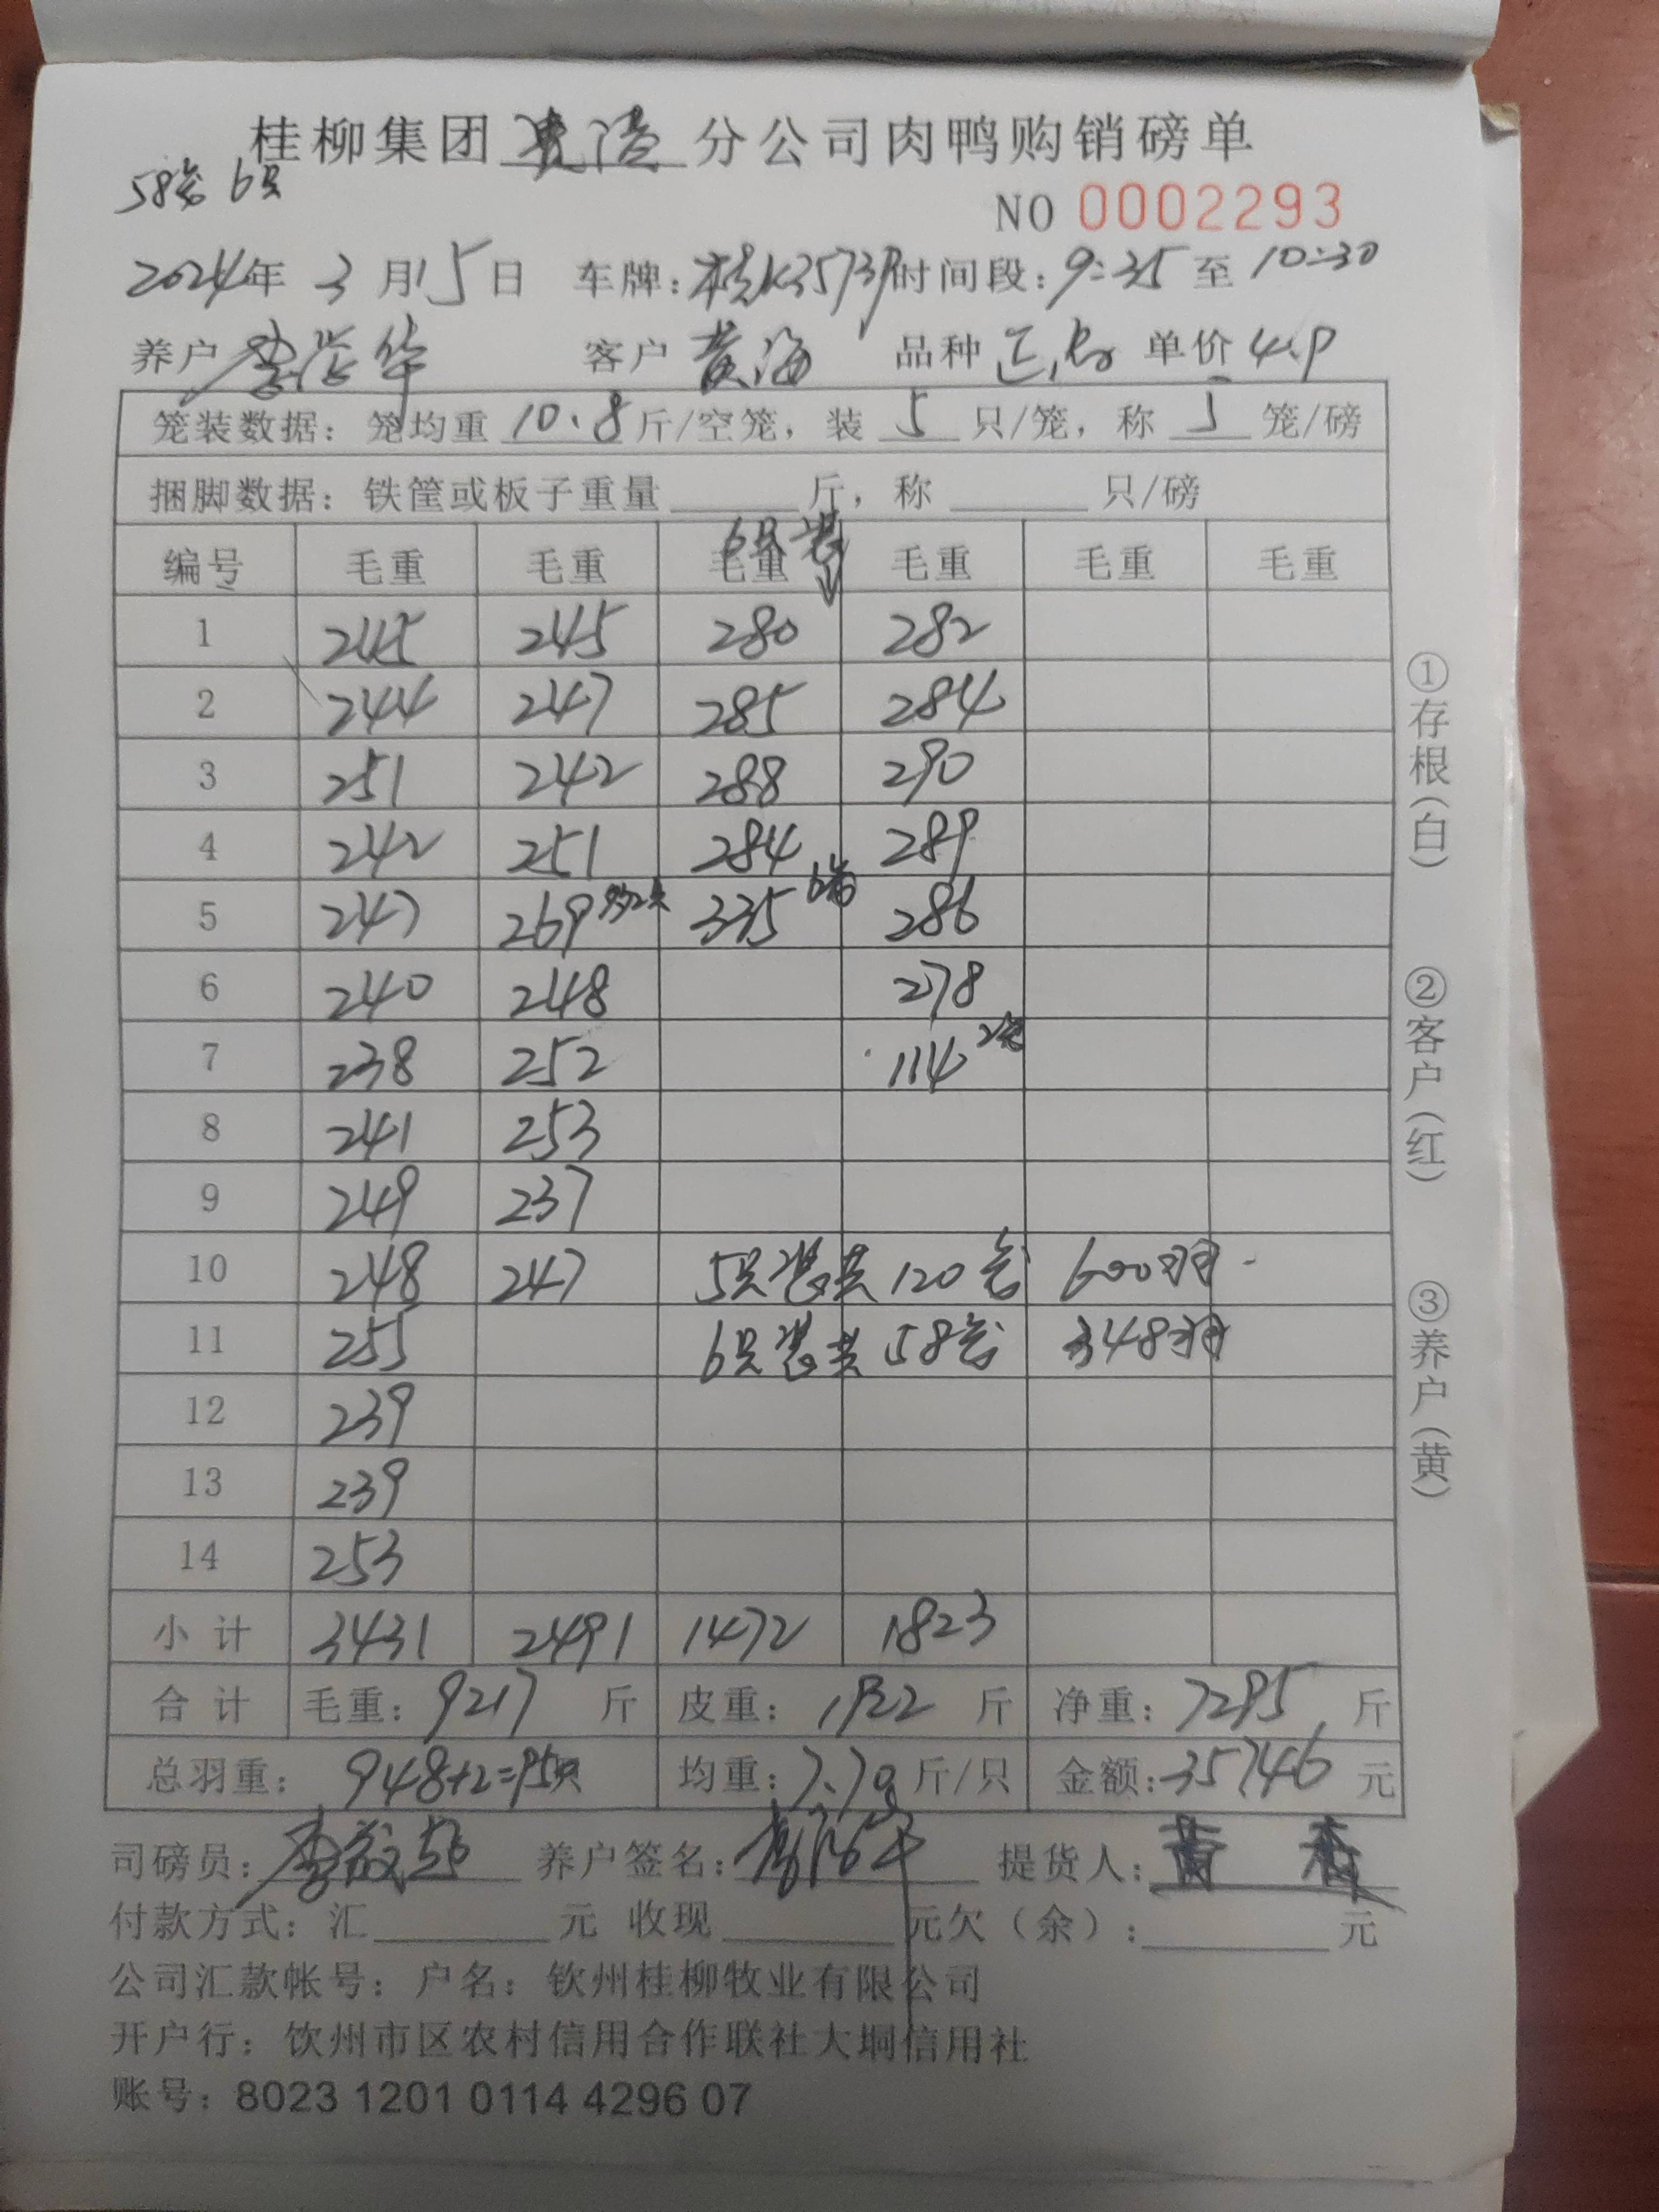 桂柳集团 分公司肉鸭购销磅单
58笼 6只
NO 0002293
2024年 3月15日 车牌: 时间段:9:35 至 10:30
养户 客户 黄海 品种 单价 4.9
笼装数据: 笼均重 10.8 斤/空笼, 装 5 只/笼, 称 5 笼/磅
捆脚数据: 铁筐或板子重量 斤, 称 只/磅
6只装
编号 毛重 毛重 毛重 毛重 毛重 毛重
1 245 245 280 282
2 244 247 285 284
3 251 242 288 290
4 242 251 284 289
5 247 269 335 6笼 286
6 240 248 278
7 238 252 114 2笼
8 241 253
9 249 237
10 248 247 5只装共120笼 600羽
11 255 6只装共58笼 348羽
12 239
13 239
14 253
小计 3431 2491 1472 1823
合计 毛重: 9217 斤 皮重: 1922 斤 净重: 7295 斤
总羽重: 948+2=950只 均重: 斤/只 金额: 35746 元
司磅员: 养户签名: 提货人:
付款方式: 汇 元 收现 元欠(余): 元
公司汇款帐号: 户名: 钦州桂柳牧业有限公司
开户行: 饮州市区农村信用合作联社大垌信用社
账号: 8023 1201 0114 4296 07
①存根(白)
②客户(红)
③养户(黄)